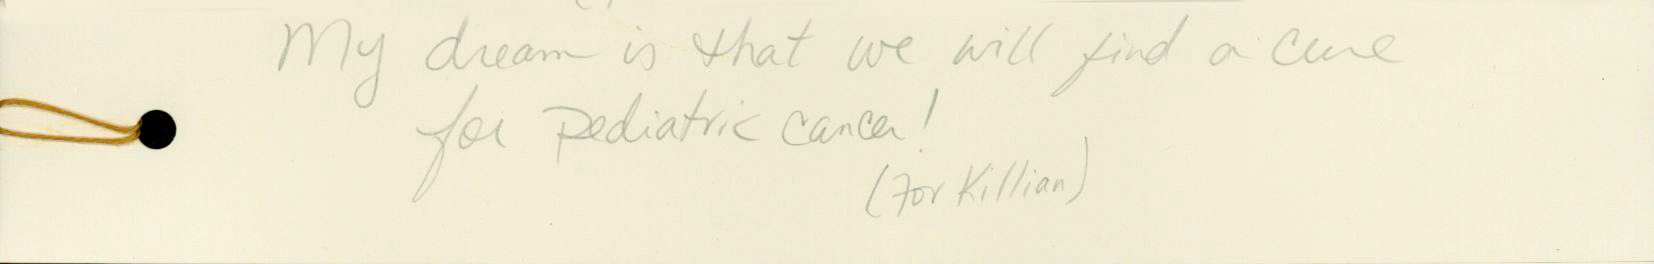 My dream is that we will find a cure
for pediatric cancer!
(For Killian)